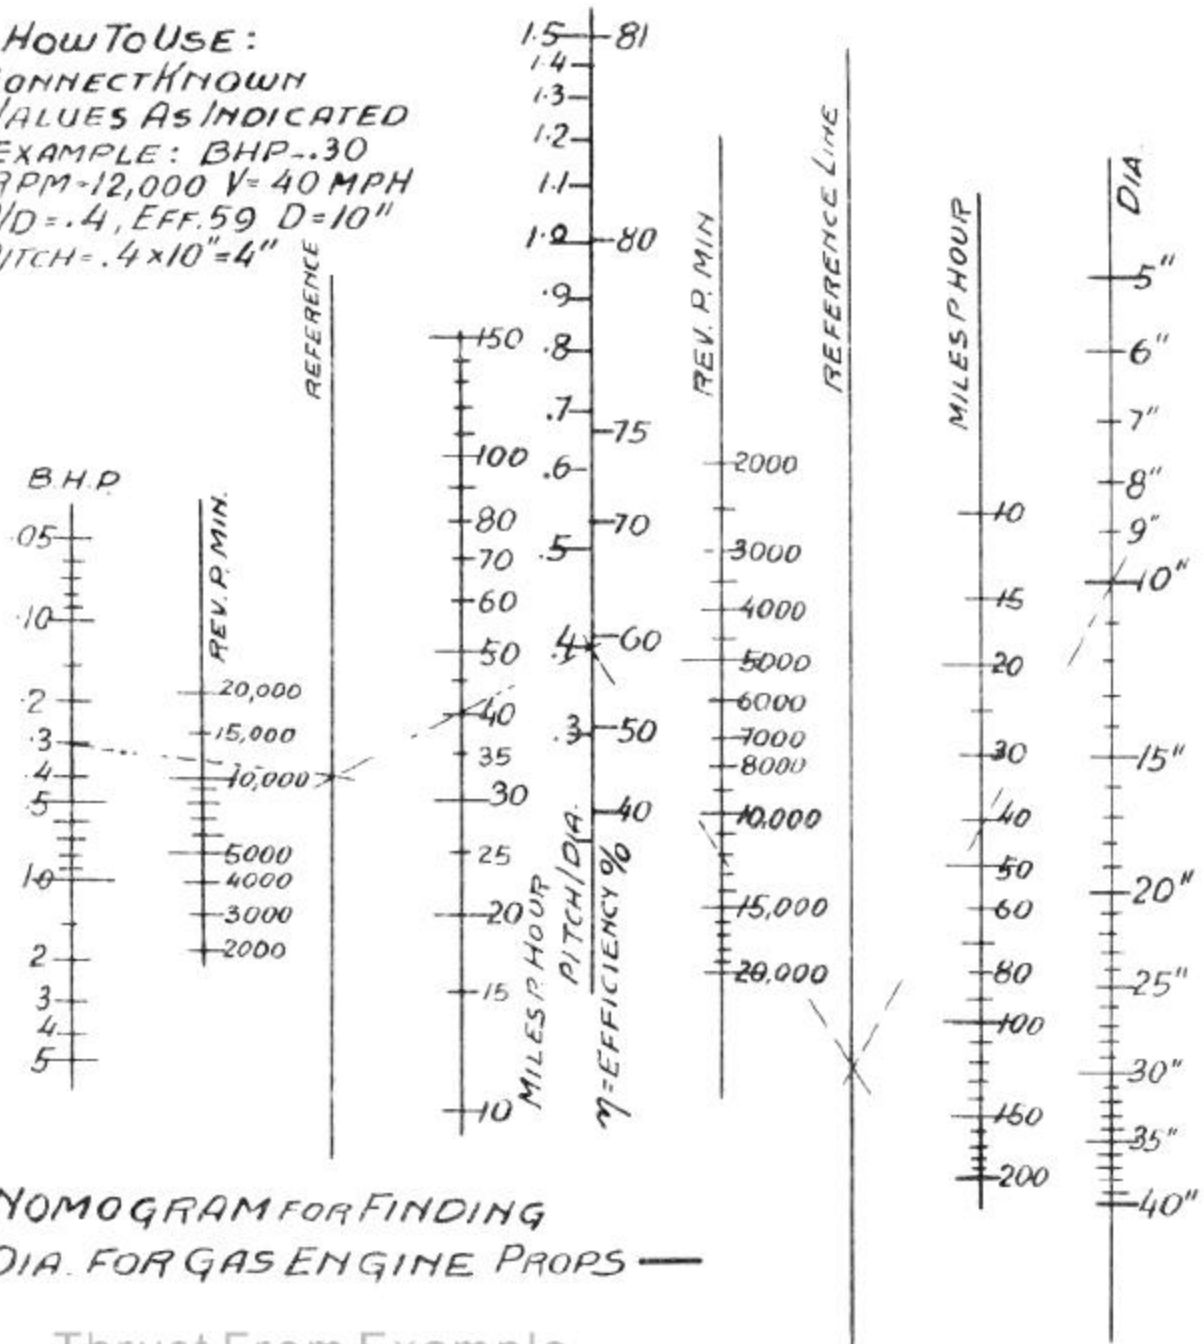 HOW TO USE:
CONNECT KNOWN
VALUES AS INDICATED
EXAMPLE: BHP-.30
RPM-12,000 V=40 MPH
P/D=.4, EFF.59 D=10"
PITCH=.4x10"=4"
B.H.P.
.05
.10
.2
.3
.4
.5
1.0
2
3
4
5
REV. P. MIN.
20,000
15,000
10,000
5000
4000
3000
2000
REFERENCE
150
100
80
70
60
50
40
35
30
25
20
15
10
MILES P. HOUR
1.5
1.4
1.3
1.2
1.1
1.0
.9
.8
.7
.6
.5
.4
.3
PITCH/DIA.
81
80
75
70
60
50
40
η=EFFICIENCY %
REV. P. MIN
2000
3000
4000
5000
6000
7000
8000
10,000
15,000
20,000
REFERENCE LINE
MILES P HOUR
10
15
20
30
40
50
60
80
100
150
200
DIA.
5"
6"
7"
8"
9"
10"
15"
20"
25"
30"
35"
40"
NOMOGRAM FOR FINDING
DIA. FOR GAS ENGINE PROPS —
Thrust From Example